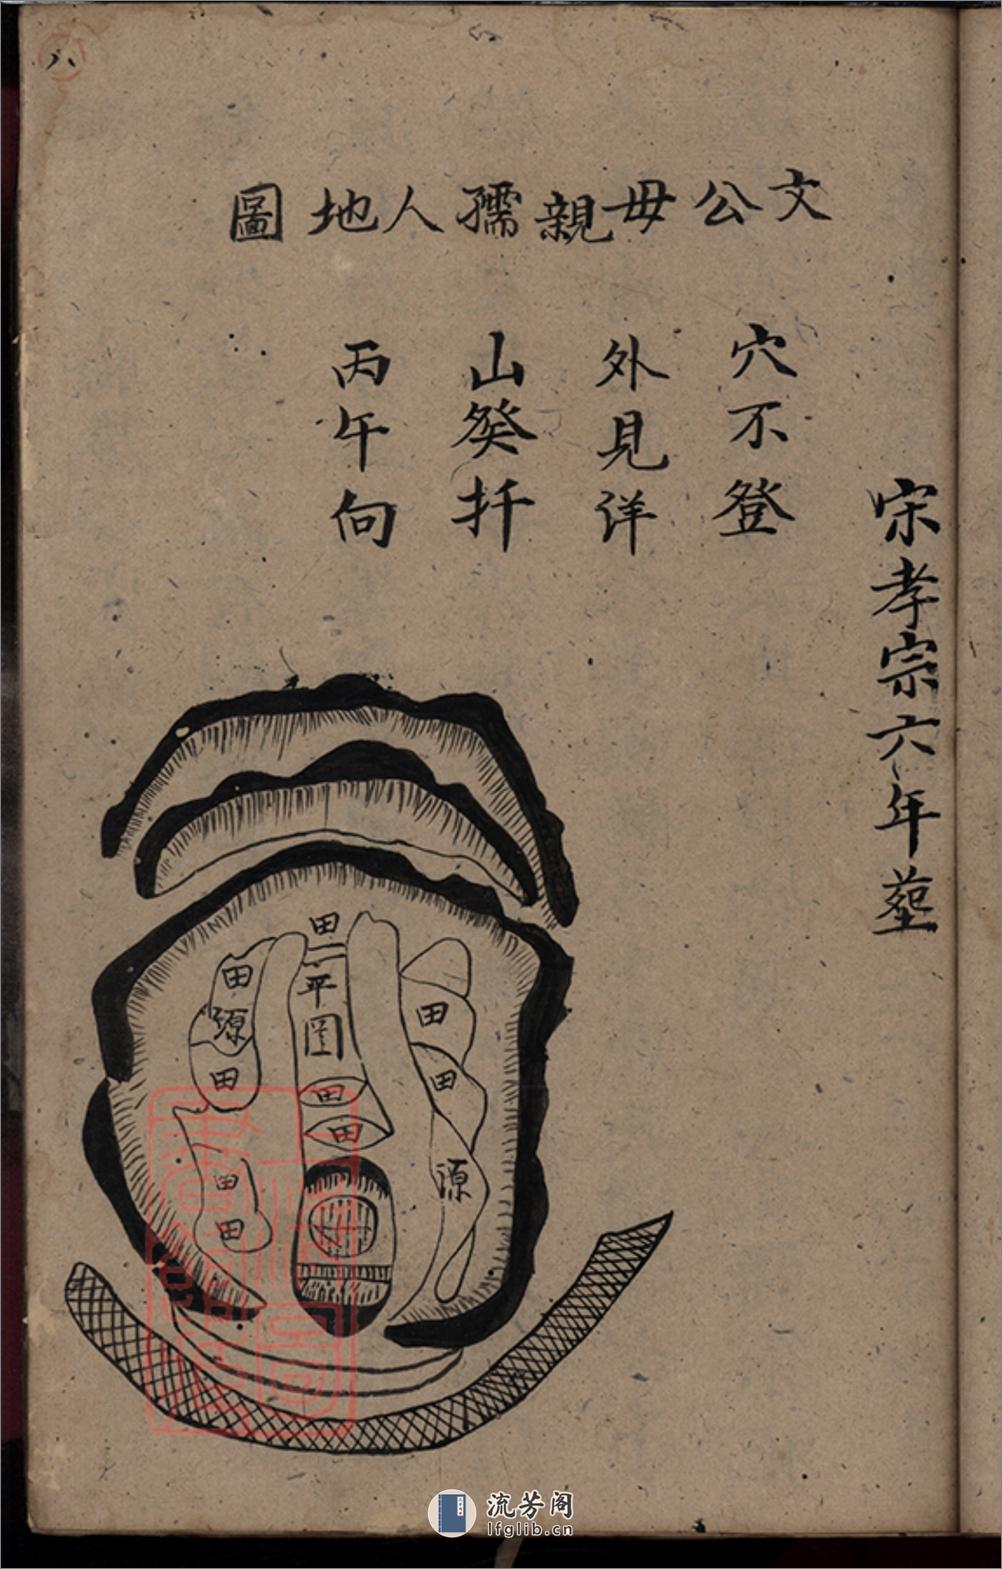 宋孝宗六年塟
文公毋親孺人地圖
穴不登
外見洋
山癸扦
丙午向
田
平
田
源
田
田
田
田
田
源
田
田
八
流芳阁
lfglib.cn